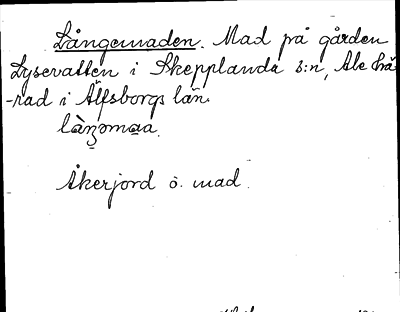 Långemaden. Mad på gården
Lysevatten i Skepplanda s:n, Ale hä-
-rad i Älfsborgs län.
låŋomaa.
Åkerjord o. mad.